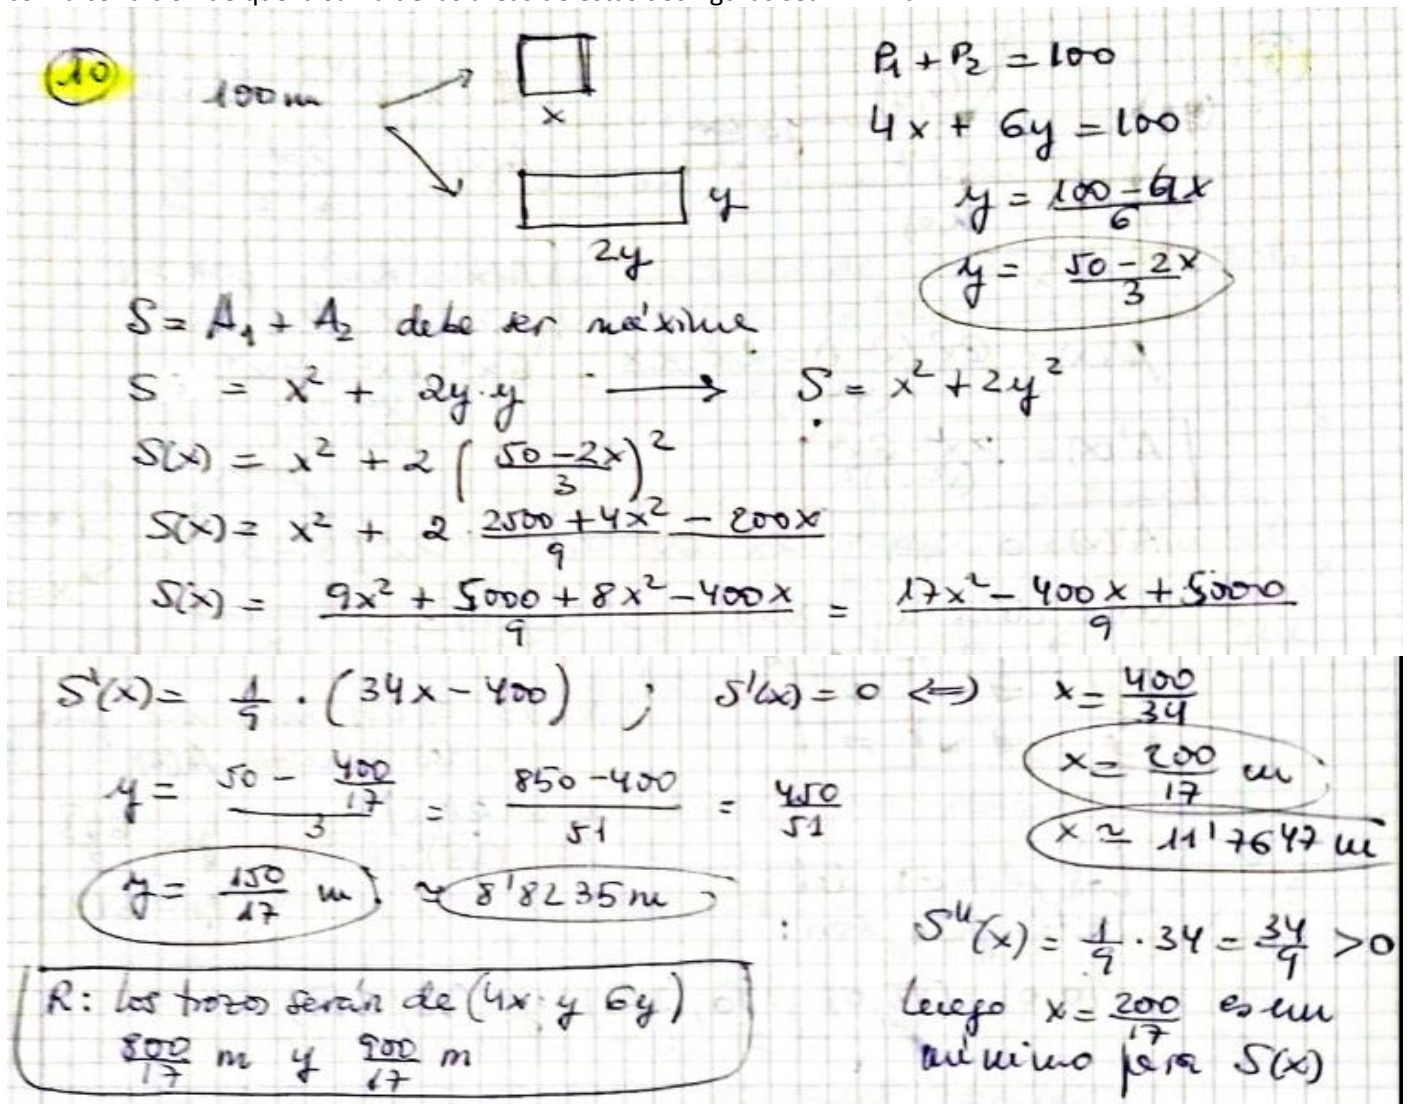 10
100m
x
2y
y
P₁ + P₂ = 100
4x + 6y = 100
y = (100 - 4x)/6
y = (50 - 2x)/3
S = A₁ + A₂ debe ser máxima
S = x² + 2y·y → S = x² + 2y²
S(x) = x² + 2 ((50 - 2x)/3)²
S(x) = x² + 2 · (2500 + 4x² - 200x)/9
S(x) = (9x² + 5000 + 8x² - 400x)/9 = (17x² - 400x + 5000)/9
S'(x) = 1/9 · (34x - 400) ; S'(x) = 0 ⇔ x = 400/34
x = 200/17 m
x ≃ 11'7647 m
y = (50 - 400/17)/3 = (850 - 400)/51 = 450/51
y = 150/17 m ≃ 8'8235 m
S''(x) = 1/9 · 34 = 34/9 > 0
luego x = 200/17 es un
mínimo para S(x)
R: los trozos serán de (4x y 6y)
800/17 m y 900/17 m